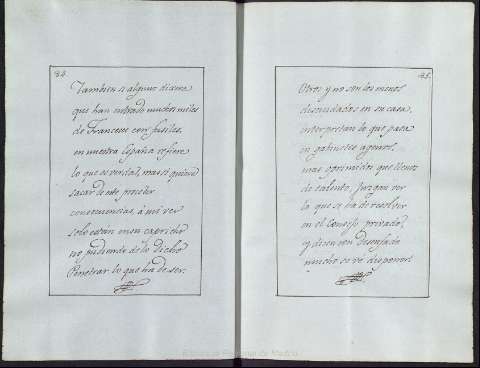 84.
Tambien si alguno dixere
que han entrado muchos miles
de Franceses con fusiles,
en nuestra España refiere
lo que es verdad, mas si quiere
sacar de este proceder
consecuencias, á mi ver
solo están en su capricho
no pudiendo de lo dicho
Penetrar lo que ha de ser.
85.
Otros y no son los menos
descuidados en su casa,
interpretan lo que pasa
en gabinetes agenos,
mas oprimidos que llenos
de talento, juzgan ver
lo que se ha de resolver
en el Consejo privado,
y dicen con desenfado
mucho se vé disponer.